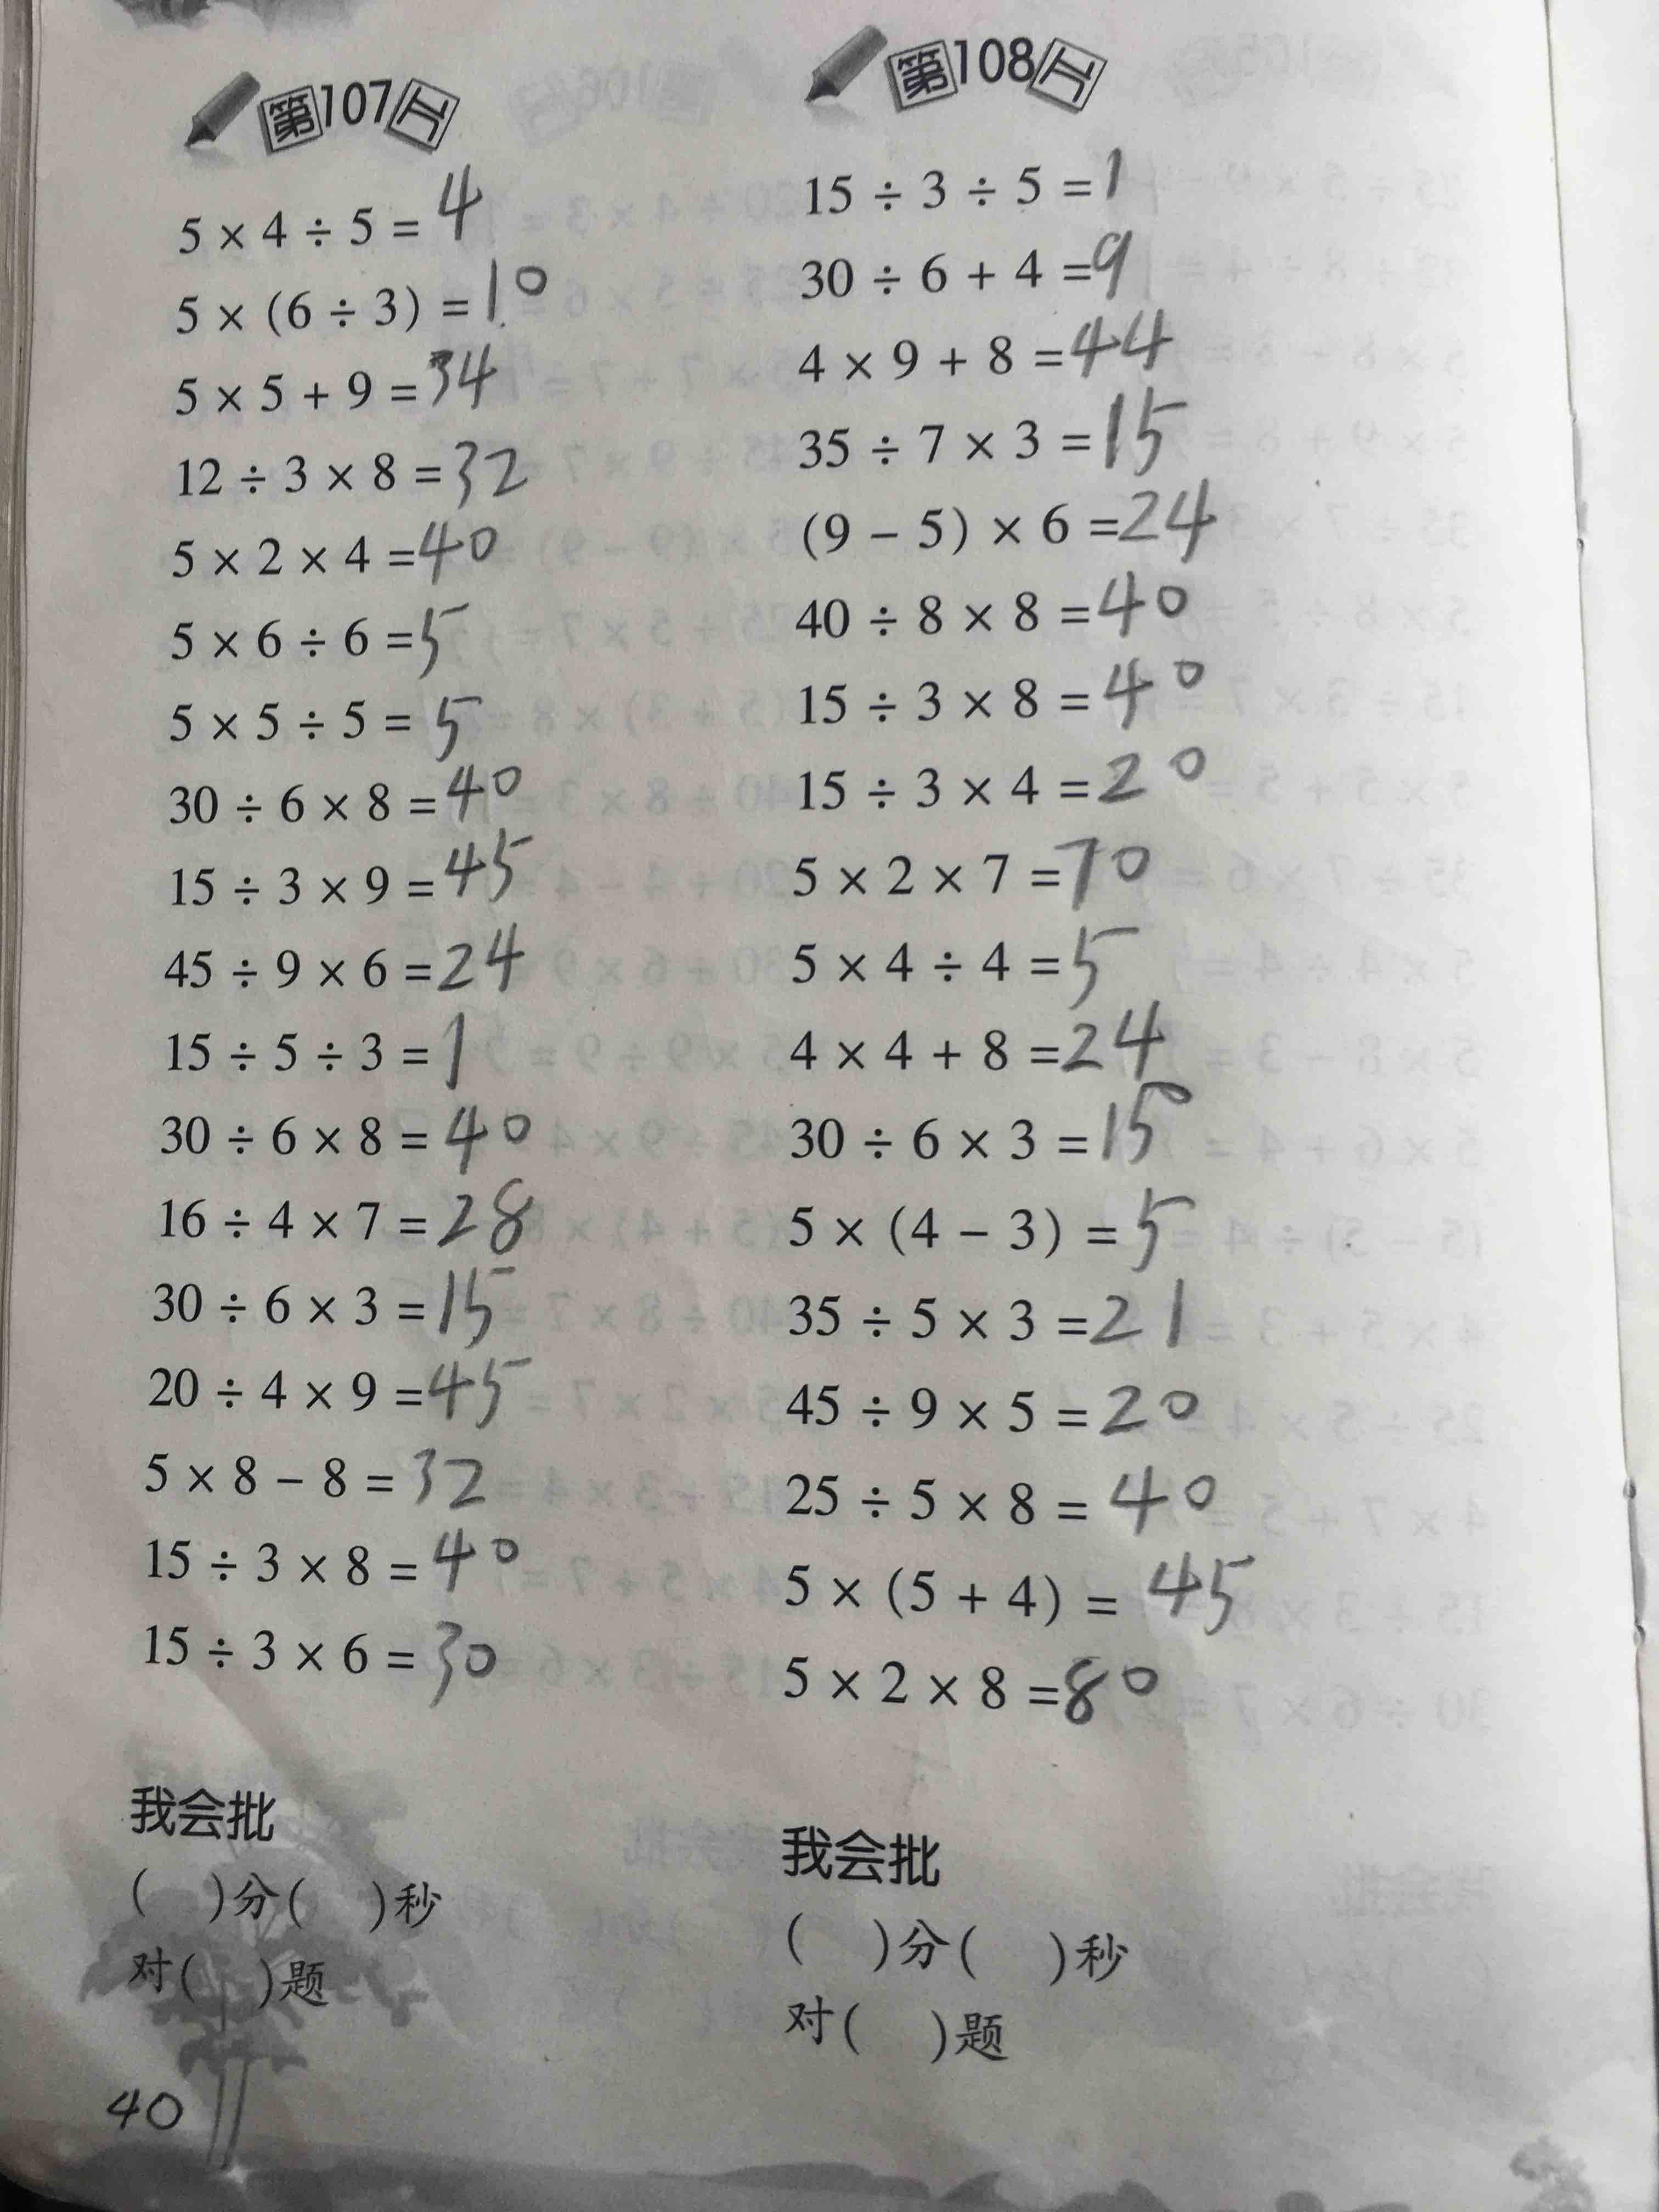 第107工
5 × 4 ÷ 5 = 4
5 × (6 ÷ 3) = 10
5 × 5 + 9 = 34
12 ÷ 3 × 8 = 32
5 × 2 × 4 = 40
5 × 6 ÷ 6 = 5
5 × 5 ÷ 5 = 5
30 ÷ 6 × 8 = 40
15 ÷ 3 × 9 = 45
45 ÷ 9 × 6 = 24
15 ÷ 5 ÷ 3 = 1
30 ÷ 6 × 8 = 40
16 ÷ 4 × 7 = 28
30 ÷ 6 × 3 = 15
20 ÷ 4 × 9 = 45
5 × 8 − 8 = 32
15 ÷ 3 × 8 = 40
15 ÷ 3 × 6 = 30
我会批
( )分( )秒
对( )题
40
第108工
15 ÷ 3 ÷ 5 = 1
30 ÷ 6 + 4 = 9
4 × 9 + 8 = 44
35 ÷ 7 × 3 = 15
(9 − 5) × 6 = 24
40 ÷ 8 × 8 = 40
15 ÷ 3 × 8 = 40
15 ÷ 3 × 4 = 20
5 × 2 × 7 = 70
5 × 4 ÷ 4 = 5
4 × 4 + 8 = 24
30 ÷ 6 × 3 = 15
5 × (4 − 3) = 5
35 ÷ 5 × 3 = 21
45 ÷ 9 × 5 = 20
25 ÷ 5 × 8 = 40
5 × (5 + 4) = 45
5 × 2 × 8 = 80
我会批
( )分( )秒
对( )题